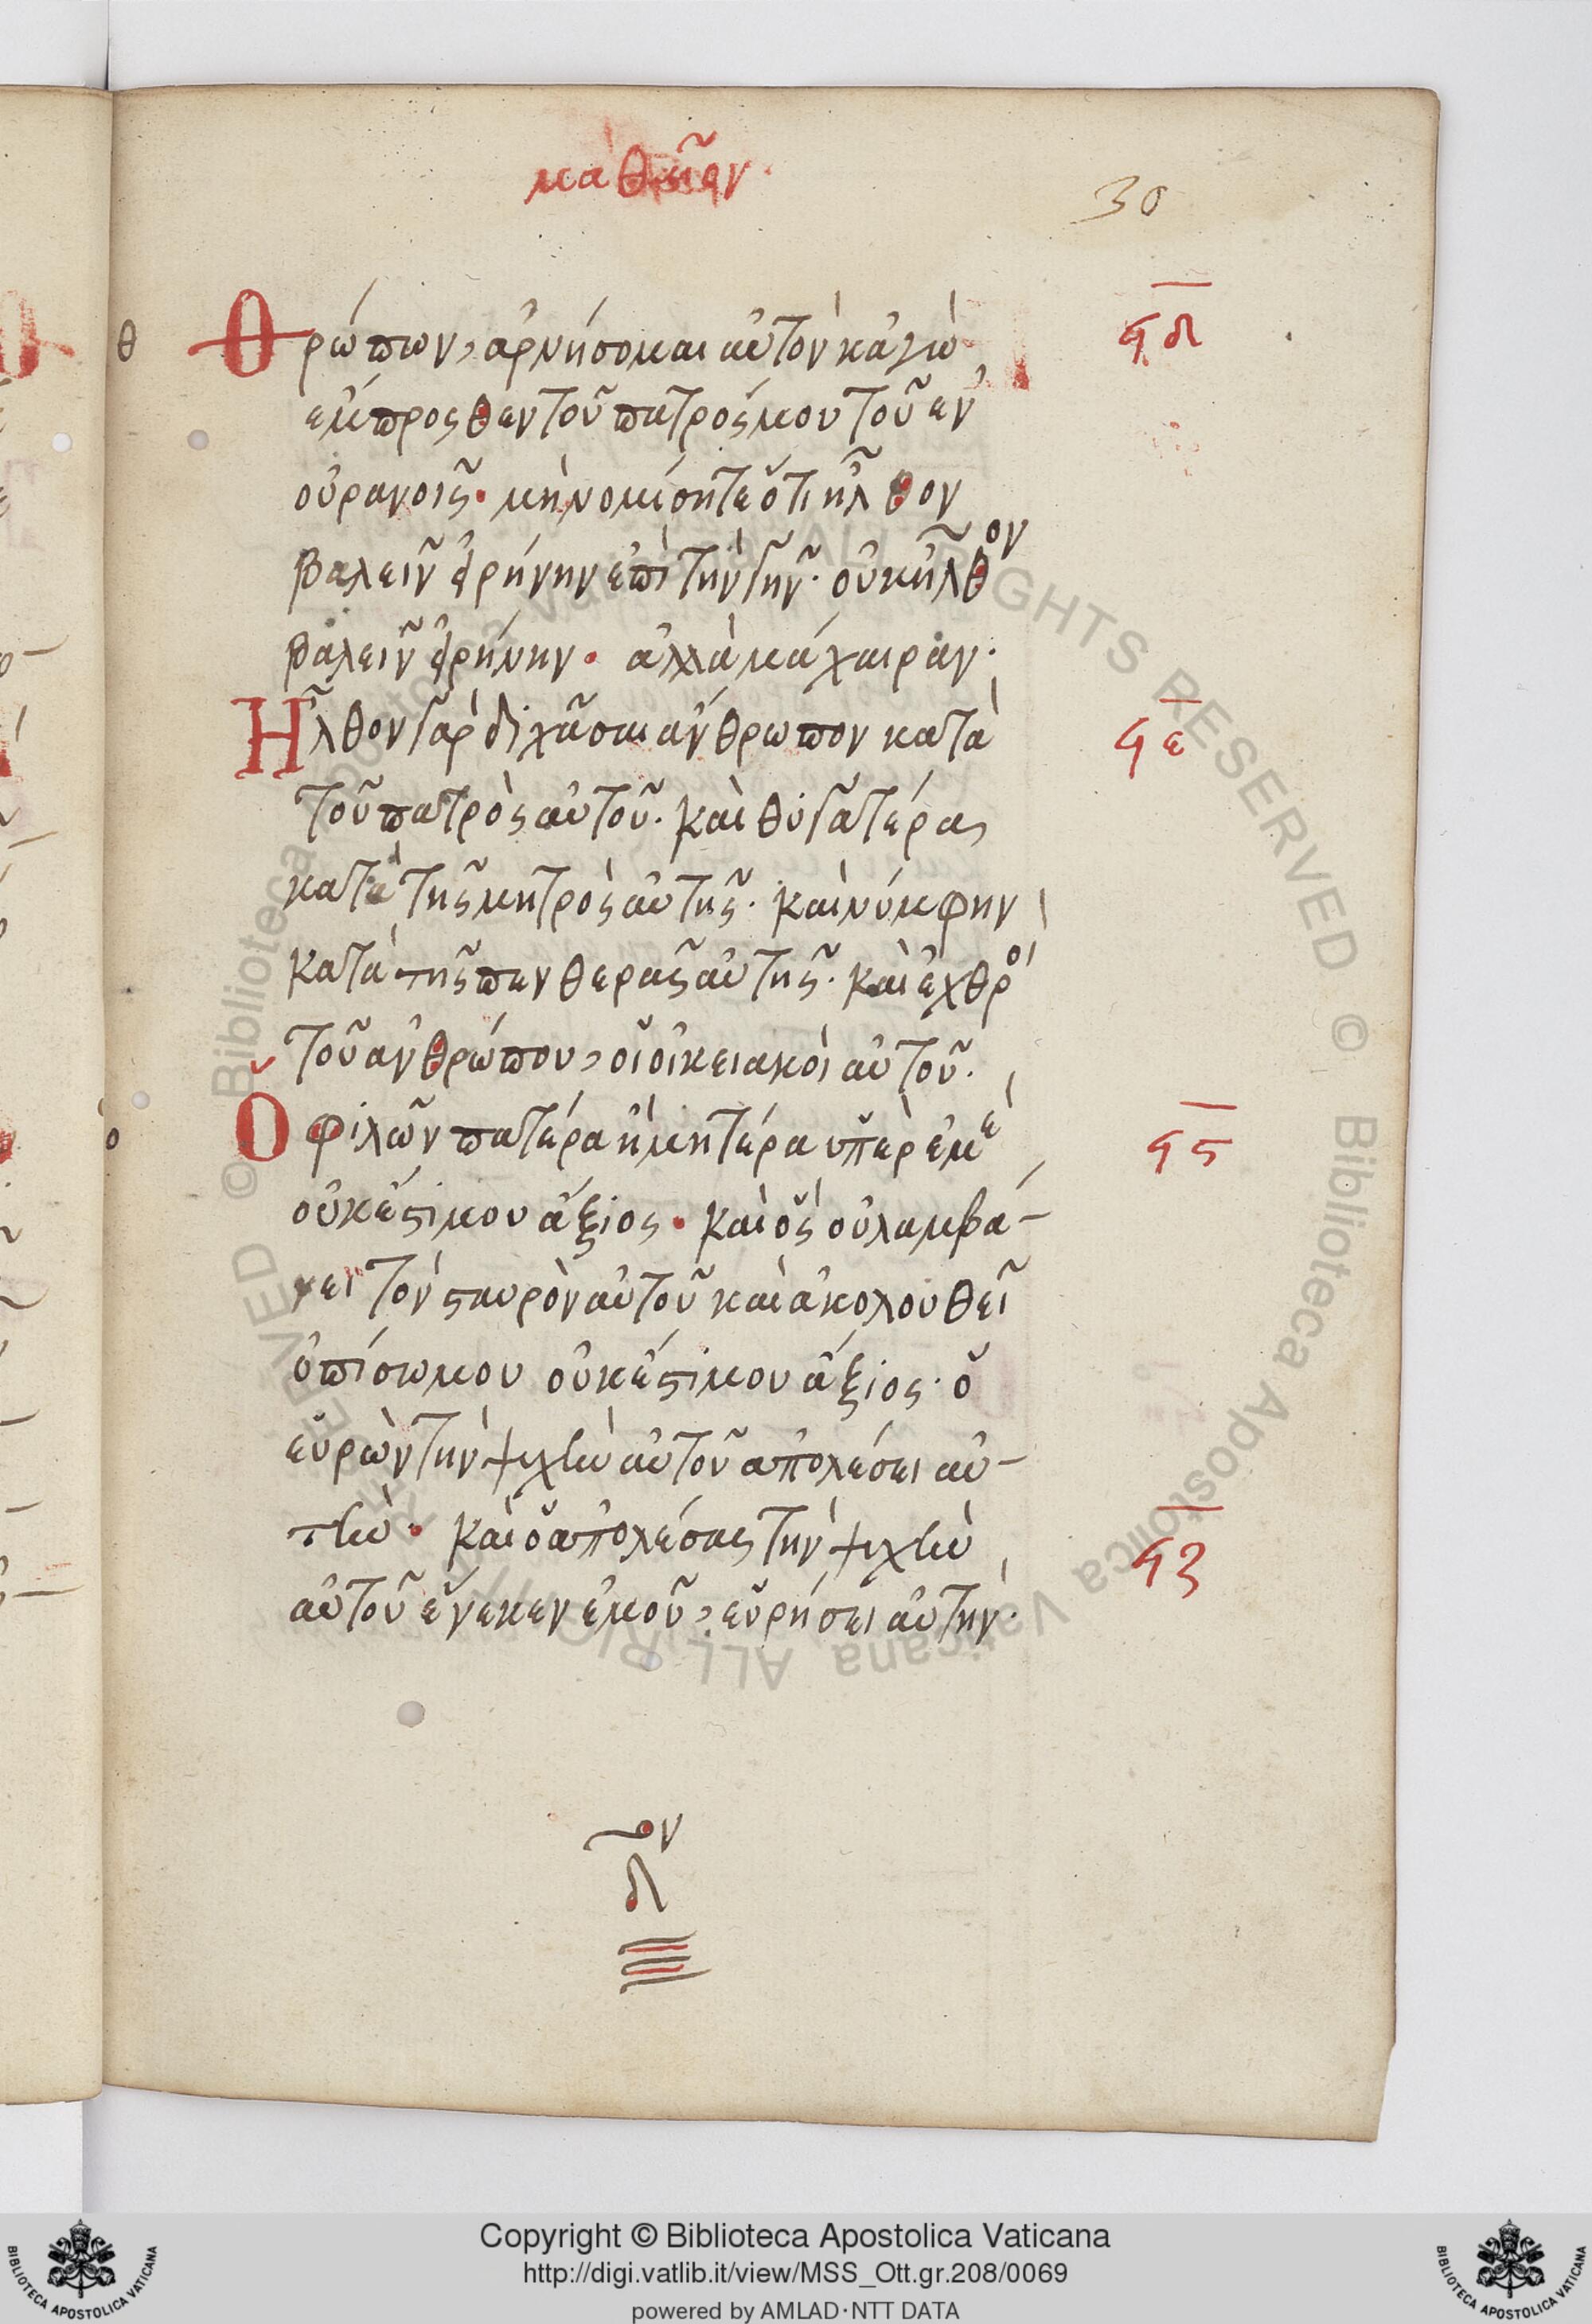 ματθαῖον
30
θ
Θρώπων, ἀρνήσομαι αὐτὸν κἀγὼ
ϟδ
ἔμπροσθεν τοῦ πατρός μου τοῦ ἐν
οὐρανοῖς· μὴ νομίσητε ὅτι ἦλθον
βαλεῖν εἰρήνην ἐπὶ τὴν γῆν· οὐκ ἦλθον
βαλεῖν εἰρήνην· ἀλλὰ μάχαιραν·
Ἦλθον γὰρ διχᾶσαι ἄνθρωπον κατὰ
ϟε
τοῦ πατρὸς αὐτοῦ· καὶ θυγατέρας
κατὰ τῆς μητρὸς αὐτῆς· καὶ νύμφην
κατὰ τῆς πενθερᾶς αὐτῆς· καὶ ἐχθροὶ
τοῦ ἀνθρώπου, οἱ οἰκειακοὶ αὐτοῦ·
ο
Ὁ φιλῶν πατέρα ἢ μητέρα ὑπὲρ ἐμὲ
ϟϛ
οὐκ ἔστι μου ἄξιος· καὶ ὃς οὐ λαμβά-
νει τὸν σταυρὸν αὐτοῦ καὶ ἀκολουθεῖ
ὀπίσω μου οὐκ ἔστι μου ἄξιος· ὁ
εὑρὼν τὴν ψυχὴν αὐτοῦ ἀπολέσει αὐ-
τὴν· καὶ ὁ ἀπολέσας τὴν ψυχὴν
ϟζ
αὐτοῦ ἕνεκεν ἐμοῦ, εὑρήσει αὐτήν·
ον
δ
Copyright © Biblioteca Apostolica Vaticana
http://digi.vatlib.it/view/MSS_Ott.gr.208/0069
powered by AMLAD·NTT DATA
BIBLIOTECA APOSTOLICA VATICANA
BIBLIOTECA APOSTOLICA VATICANA
© Biblioteca Apostolica Vaticana ALL RIGHTS RESERVED © Biblioteca Apostolica Vaticana ALL RIGHTS RESERVED